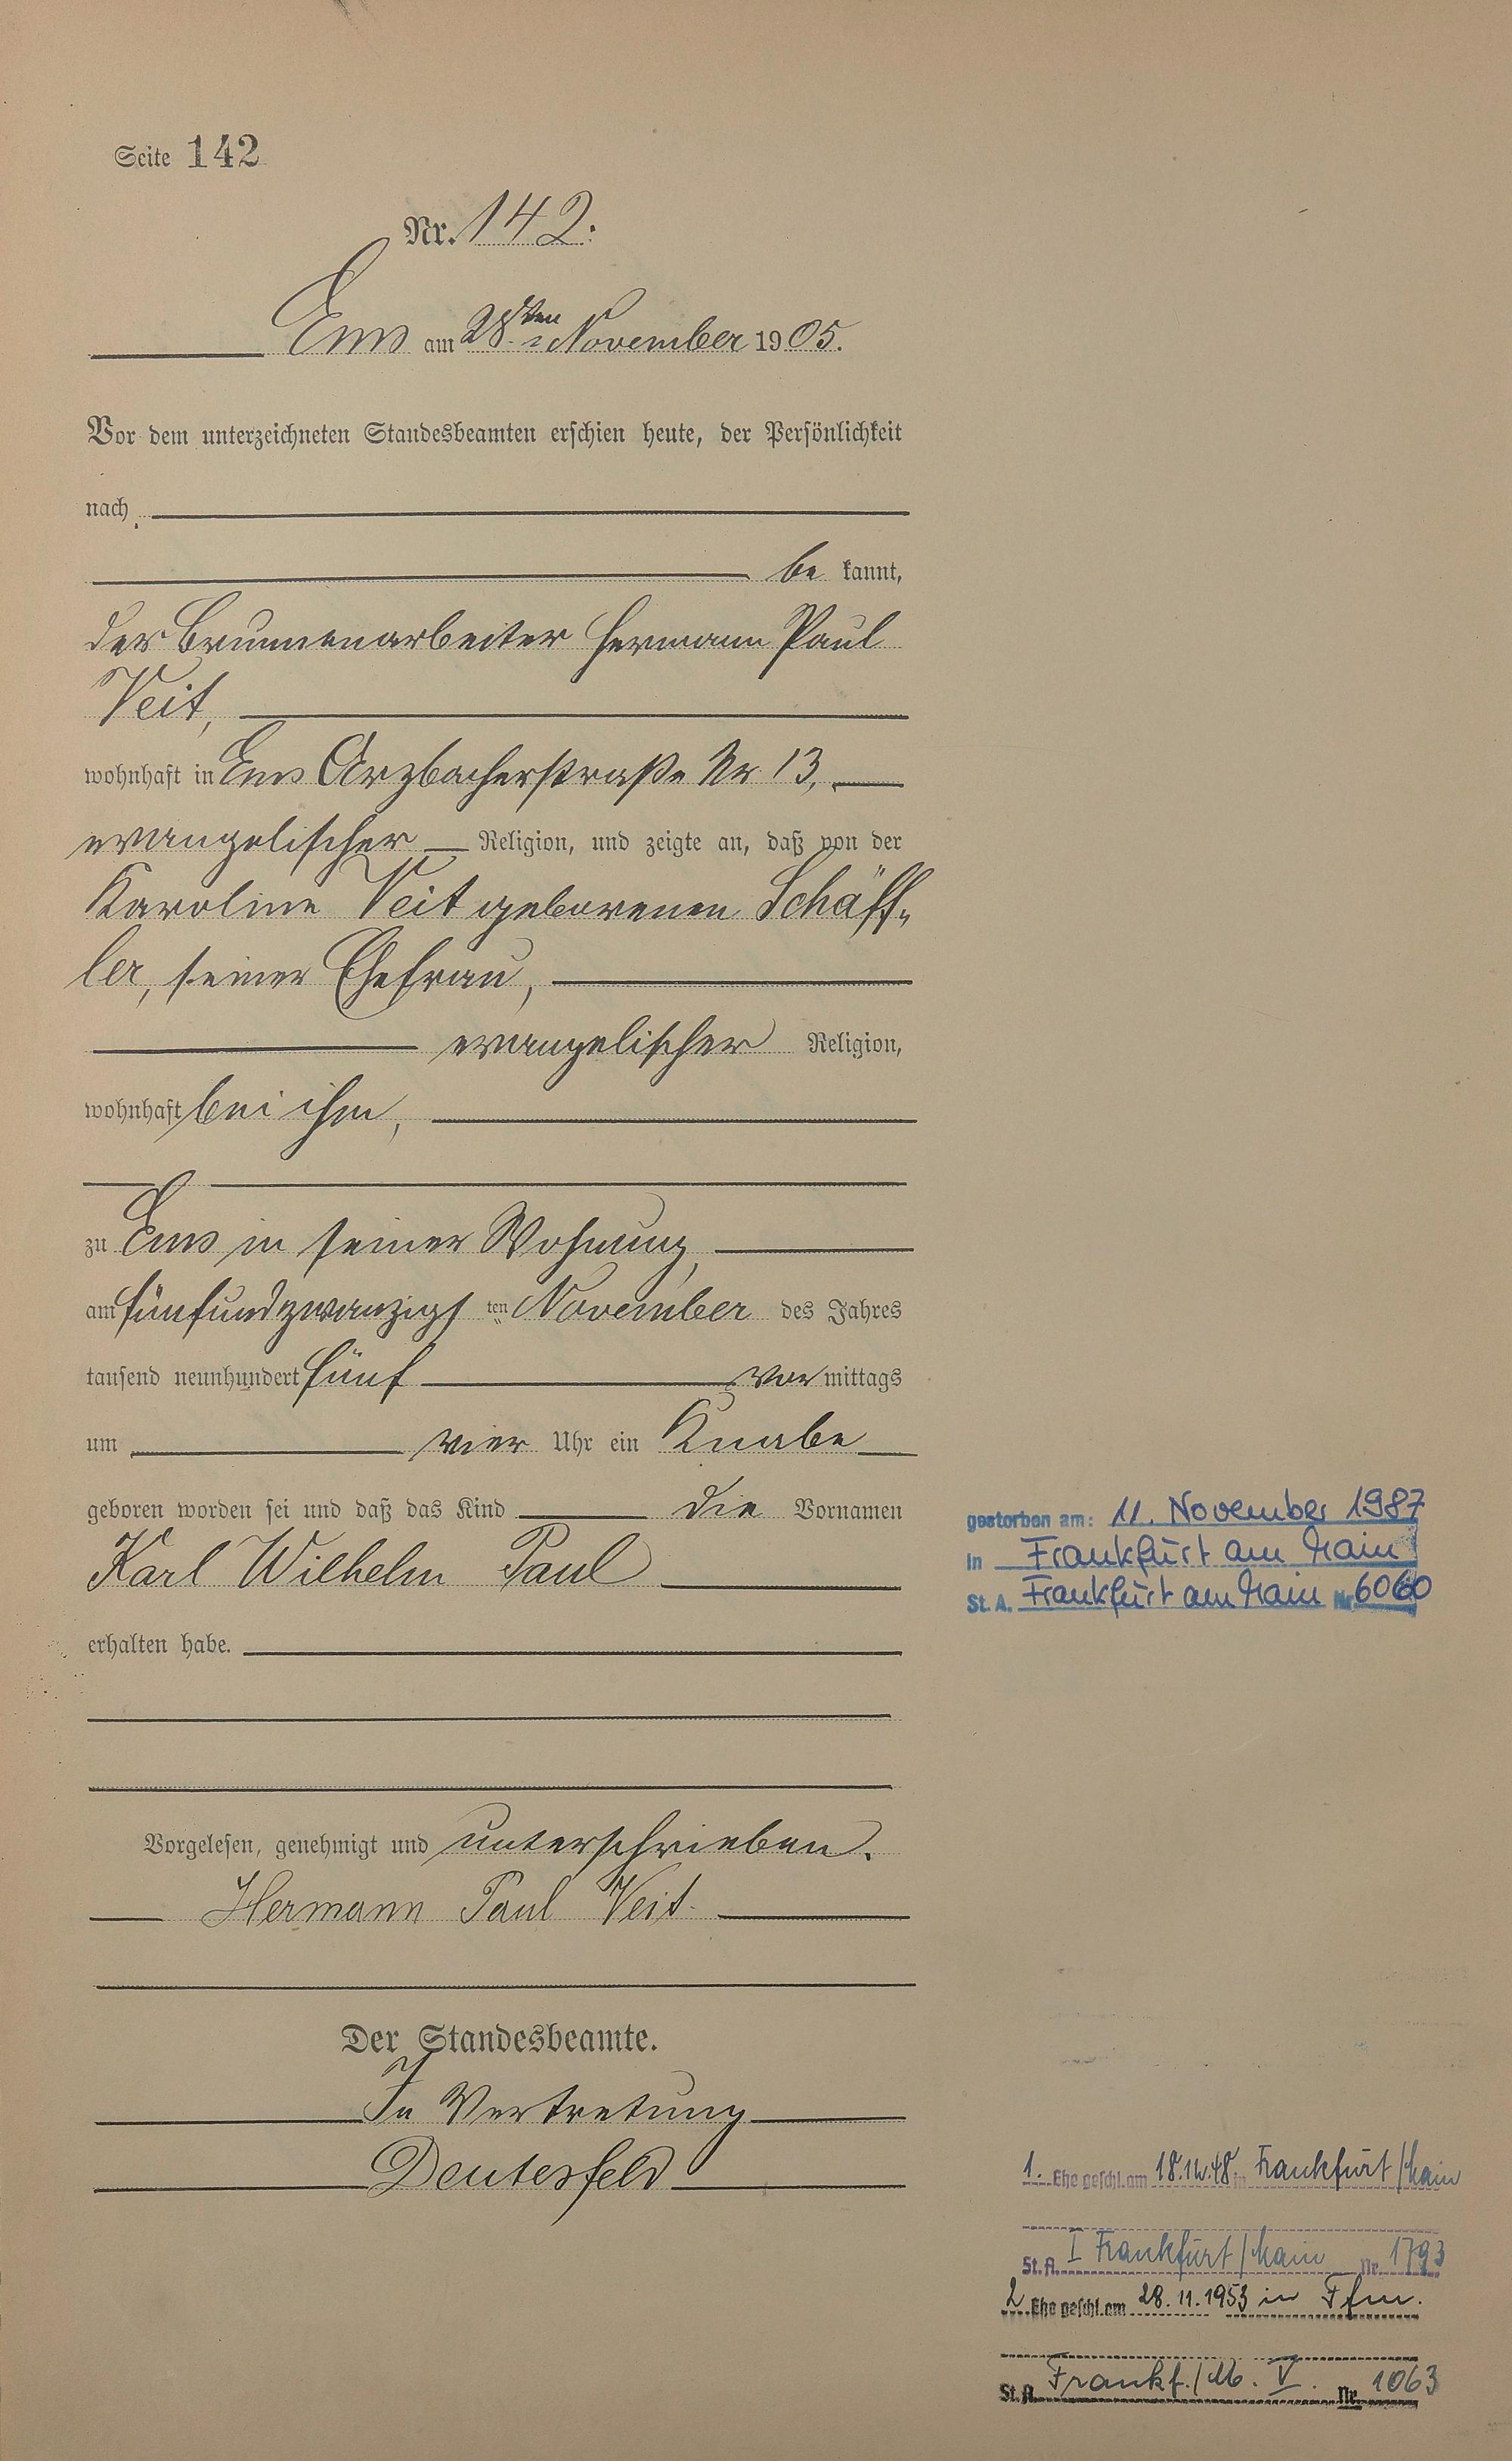 Seite 142
Nr. 142.
Ems am 28ten November 1905.
Vor dem unterzeichneten Standesbeamten erschien heute, der Persönlichkeit
nach
be kannt,
der Brunnenarbeiter Hermann Paul
Veit,
wohnhaft in Ems Arzbacherstraße Nr 13,
evangelischer Religion, und zeigte an, daß von der
Karoline Veit geborenen Schäff-
ler, seiner Ehefrau,
evangelischer Religion,
wohnhaft bei ihm,
zu Ems in seiner Wohnung,
am fünfundzwanzigs ten November des Jahres
tausend neunhundert fünf vor mittags
um vier Uhr ein Knabe
geboren worden sei und daß das Kind die Vornamen
Karl Wilhelm Paul
erhalten habe.
Vorgelesen, genehmigt und unterschrieben.
Hermann Paul Veit.
Der Standesbeamte.
In Vertretung
Deutesfeld
gestorben am: 11. November 1987
in Frankfurt am Main
St. A. Frankfurt am Main Nr. 6060
1. Ehe geschl. am 18.12.48 in Frankfurt/Main
St. A. I Frankfurt/Main Nr. 1793
2. Ehe geschl. am 28.11.1953 in Ffm.
St. A. Frankf./M. V. Nr. 1063